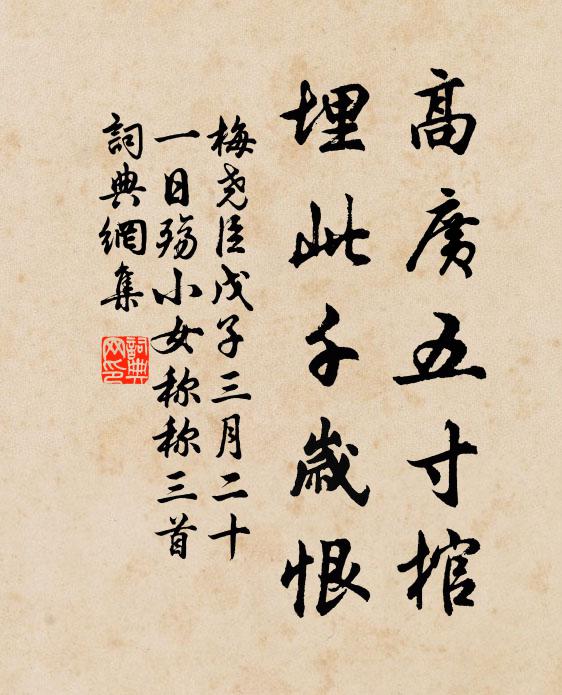 高廣五寸棺
埋此千歲恨
梅堯臣戊子三月二十
一日殤小女称称三首
詞典網集
詞典
网印